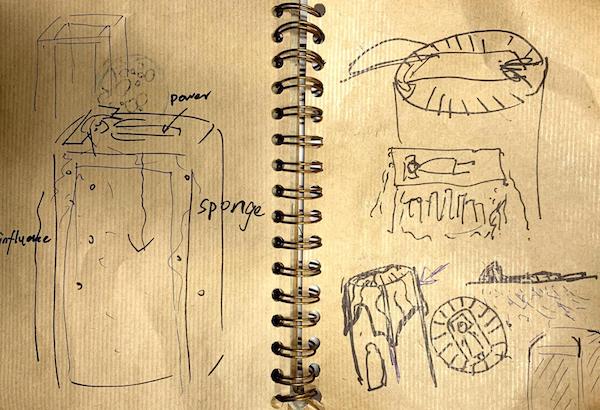 power
sponge
influence